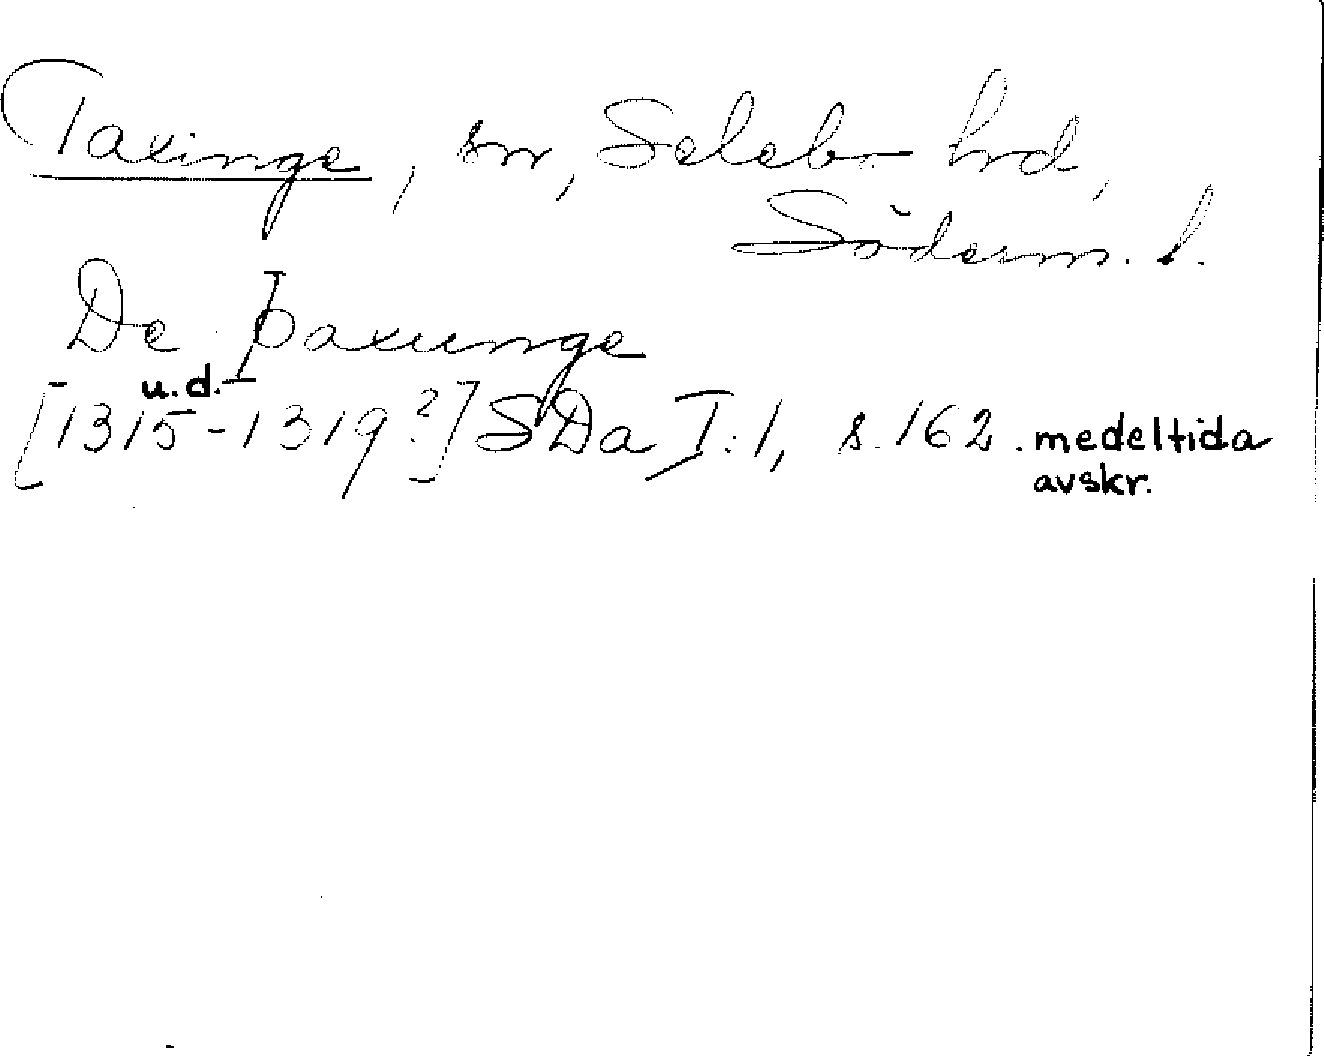 Taxinge, sn, Selebo hrd,
Söderm. l.
De Þaxunge
u.d.
[1315-1319?] SDa I:1, s. 162. medeltida
avskr.